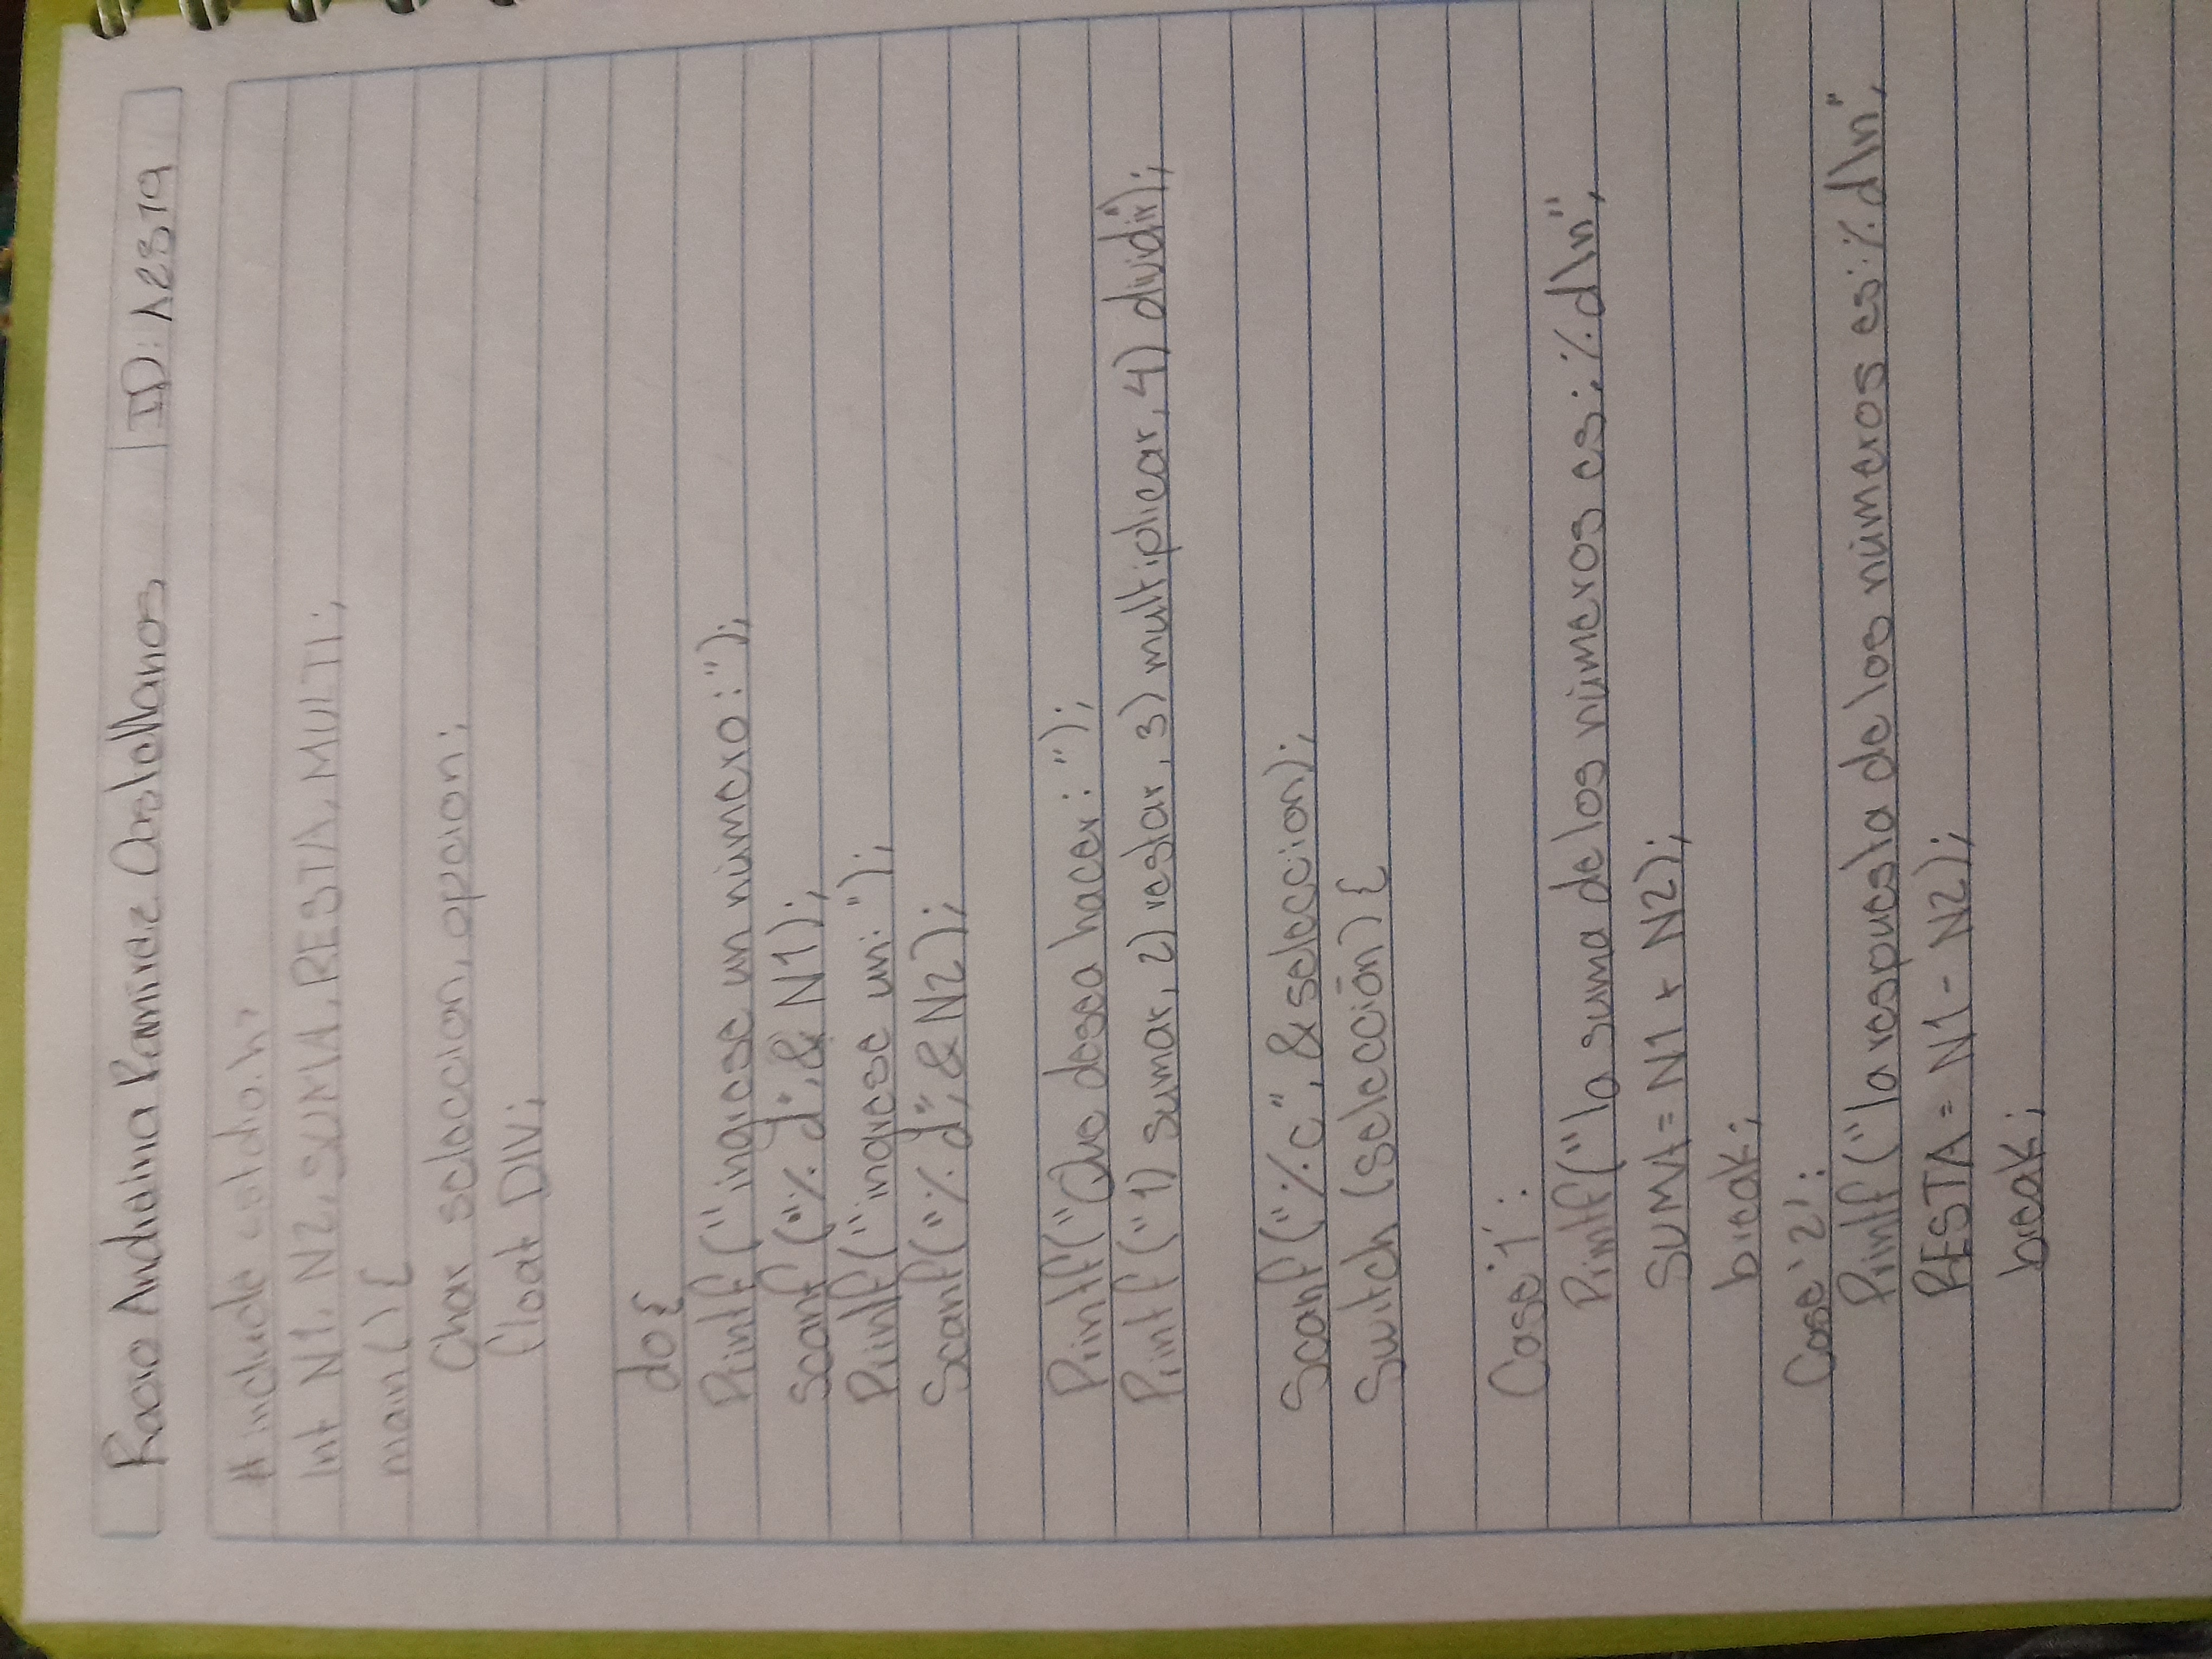 Rocio Andraina Ramirez Castellanos ID: 128519
# include <stdio.h>
Int N1, N2, SUMA, RESTA, MULTI;
main() {
Char seleccion, opcion;
float DIV;
do {
Printf ("ingrese un número: ");
Scanf ("%d", & N1);
Printf ("ingrese un: ");
Scanf ("%d", & N2);
Printf ("Que desea hacer: ");
Printf ("1) sumar, 2) restar, 3) multiplicar, 4) dividir");
Scanf ("%c", & seleccion);
Switch (selección) {
Case '1':
Printf ("la suma de los números es: %d\n",
SUMA = N1 + N2);
break;
Case '2':
Printf ("la respuesta de los números es: %d\n",
RESTA = N1 - N2);
break;